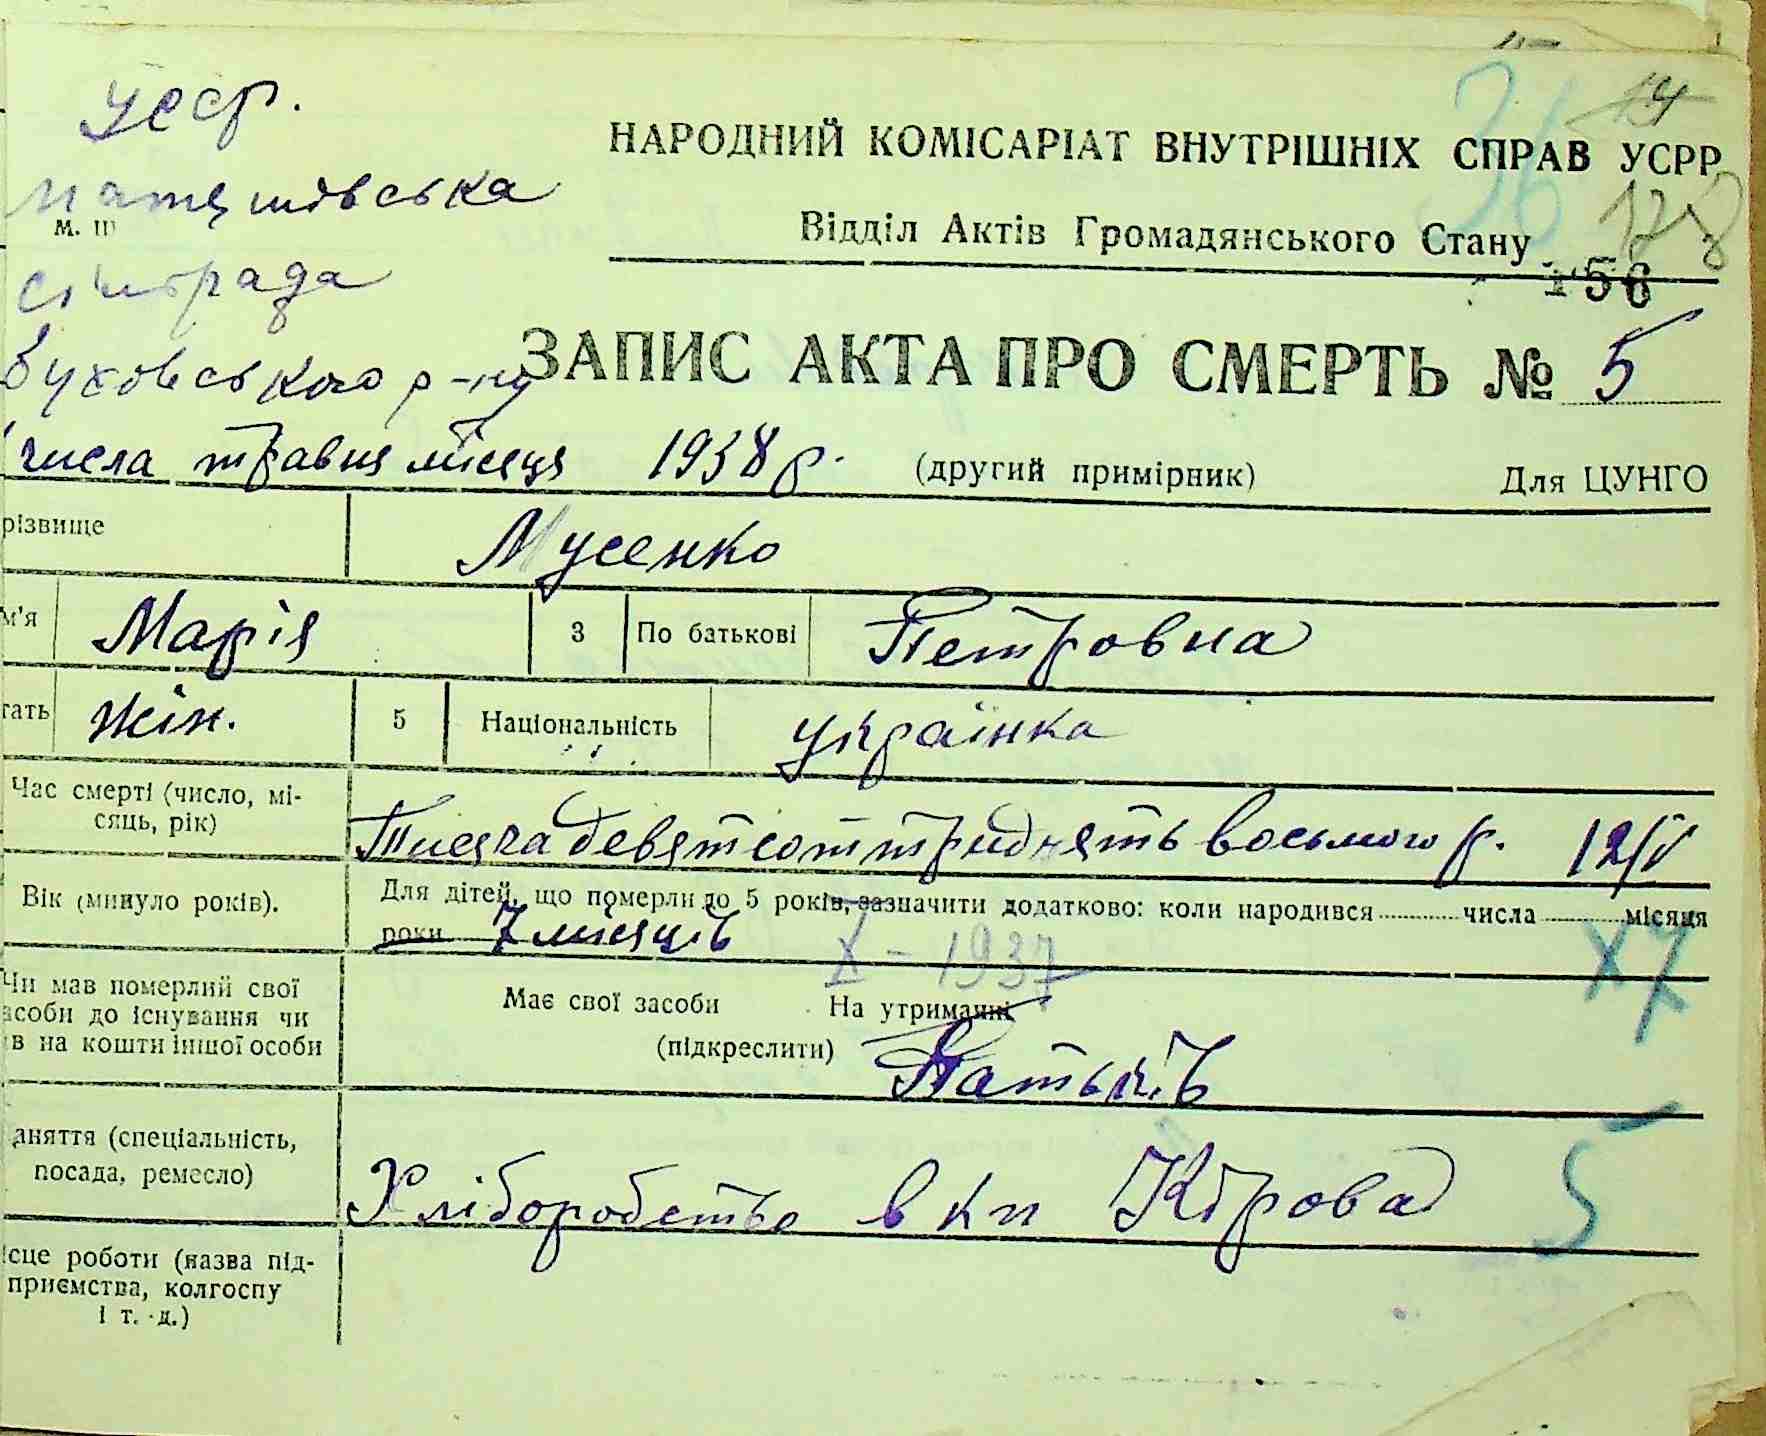 УССР.
Матяшівська
м. ш
сільрада
буховського р-ну
НАРОДНИЙ КОМІСАРІАТ ВНУТРІШНІХ СПРАВ УСРР
Відділ Актів Громадянського Стану
36
14
178
156
ЗАПИС АКТА ПРО СМЕРТЬ № 5
числа травня місяця 1938 р. (другий примірник) Для ЦУНГО
різвище Мусенко
м'я Марія 3 По батькові Петровна
тать жін. 5 Національність українка
Час смерті (число, мі-
сяць, рік)
Тисяча девятсот тридцять восьмого р. 12/V
Вік (минуло років).
Для дітей, що померли до 5 років, зазначити додатково: коли народився числа місяця
роки 7 місяців X – 1937
X 7
Чи мав померлий свої
асоби до існування чи
в на кошти іншої особи
Має свої засоби На утриманні
(підкреслити)
Батьків
аняття (спеціальність,
посада, ремесло)
Хліборобство в кп Кірова
5
ісце роботи (назва під-
приємства, колгоспу
і т. д.)